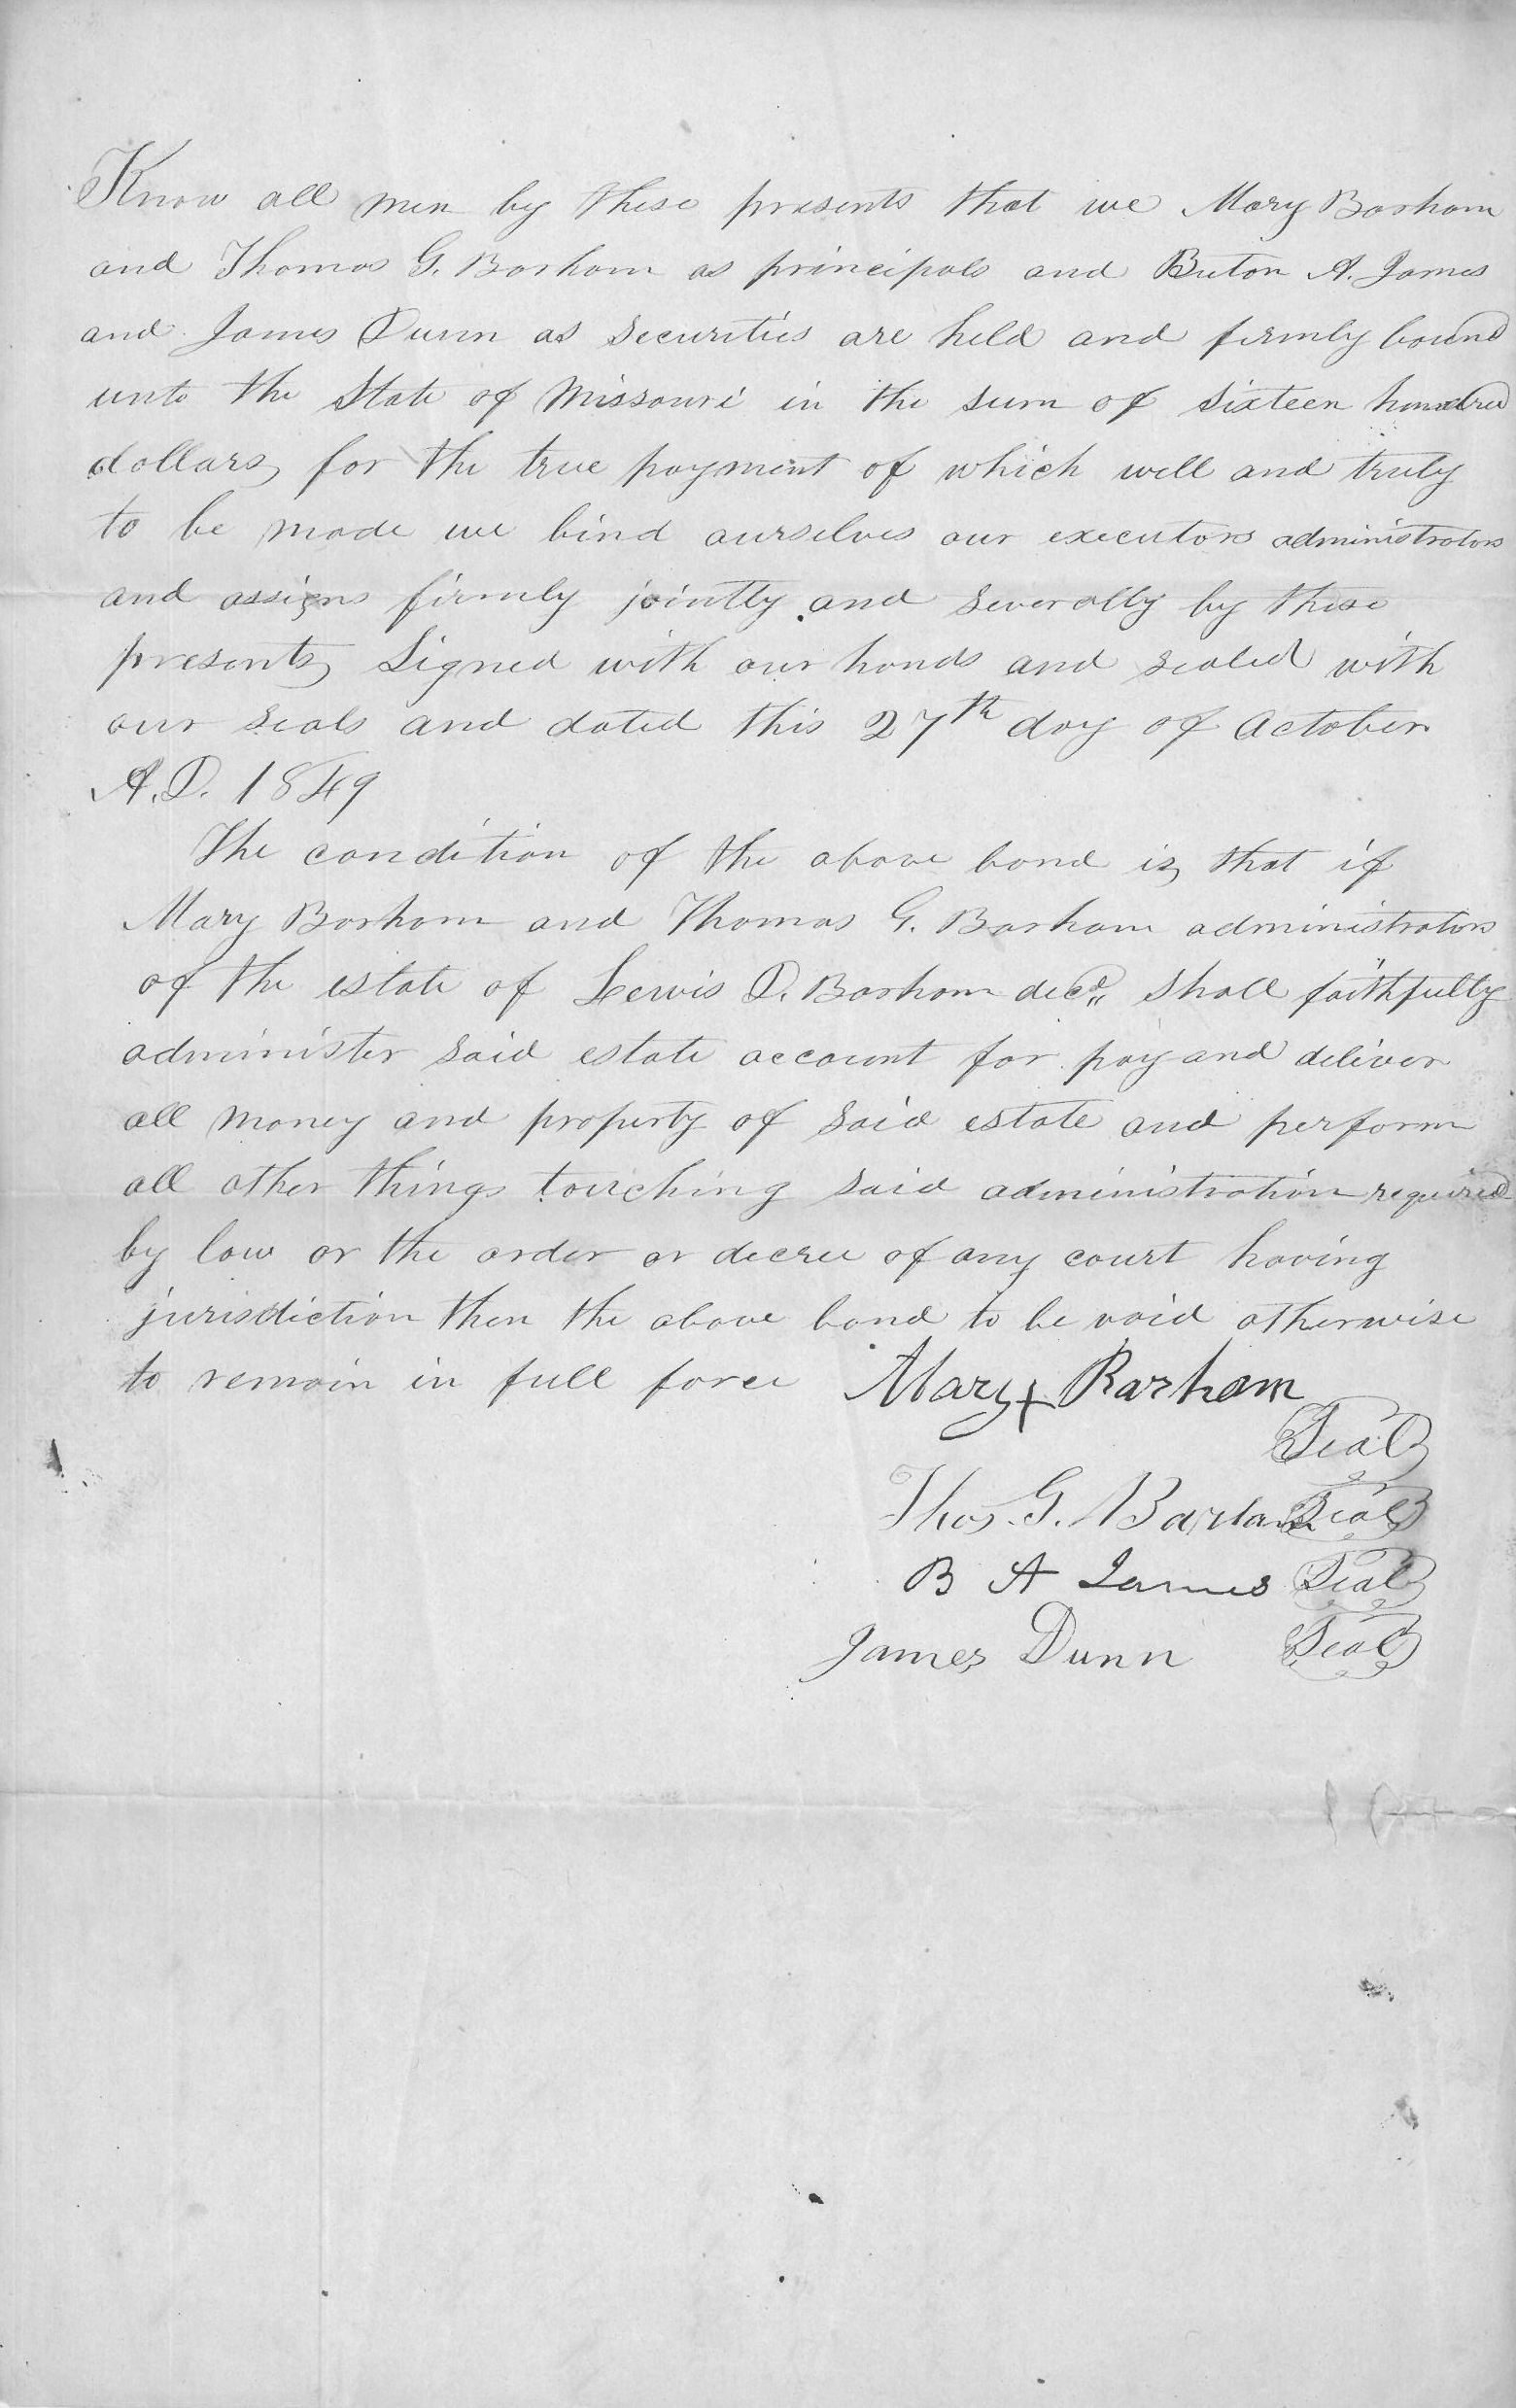 Know all men by these presents that we Mary Barham
and Thomas G. Barham as principals and Buton A. James
and James Dunn as securities are held and firmly bound
unto the State of Missouri in the sum of sixteen hundred
dollars, for the true payment of which well and truly
to be made we bind ourselves our executors administrators
and assigns firmly jointly and severally by these
presents, Signed with our hands and sealed with
our seals and dated this 27th day of October
A.D. 1849
The condition of the above bond is, that if
Mary Barham and Thomas G. Barham administrators
of the estate of Lewis D. Barham decd,, shall faithfully
administer said estate account for pay and deliver
all money and property of said estate and perform
all other things touching said administration required
by law or the order or decree of any court having
jurisdiction then the above bond to be void otherwise
to remain in full force Mary x Barham
Seal
Thos. G. Barham Seal
B A James Seal
James Dunn Seal